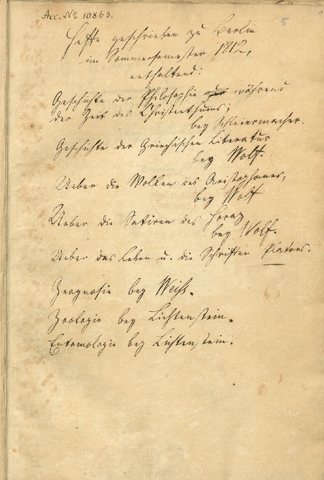 Acc. No 10863.
5
Hefte geschrieben zu Berlin
im Sommersemester 1812,
enthaltend:
Geschichte der Philosophie während
der Zeit des Christenthums;
bey Schleiermacher.
Geschichte der Griechischen Literatur
bey Wolf.
Ueber die Wolken des Aristophanes,
bey Wolf
Ueber die Satiren des Horaz
bey Wolf.
Ueber das Leben u. die Schriften Platons.
Geognosie bey Weiß.
Zoologie bey Lichtenstein.
Entomologie bey Lichtenstein.